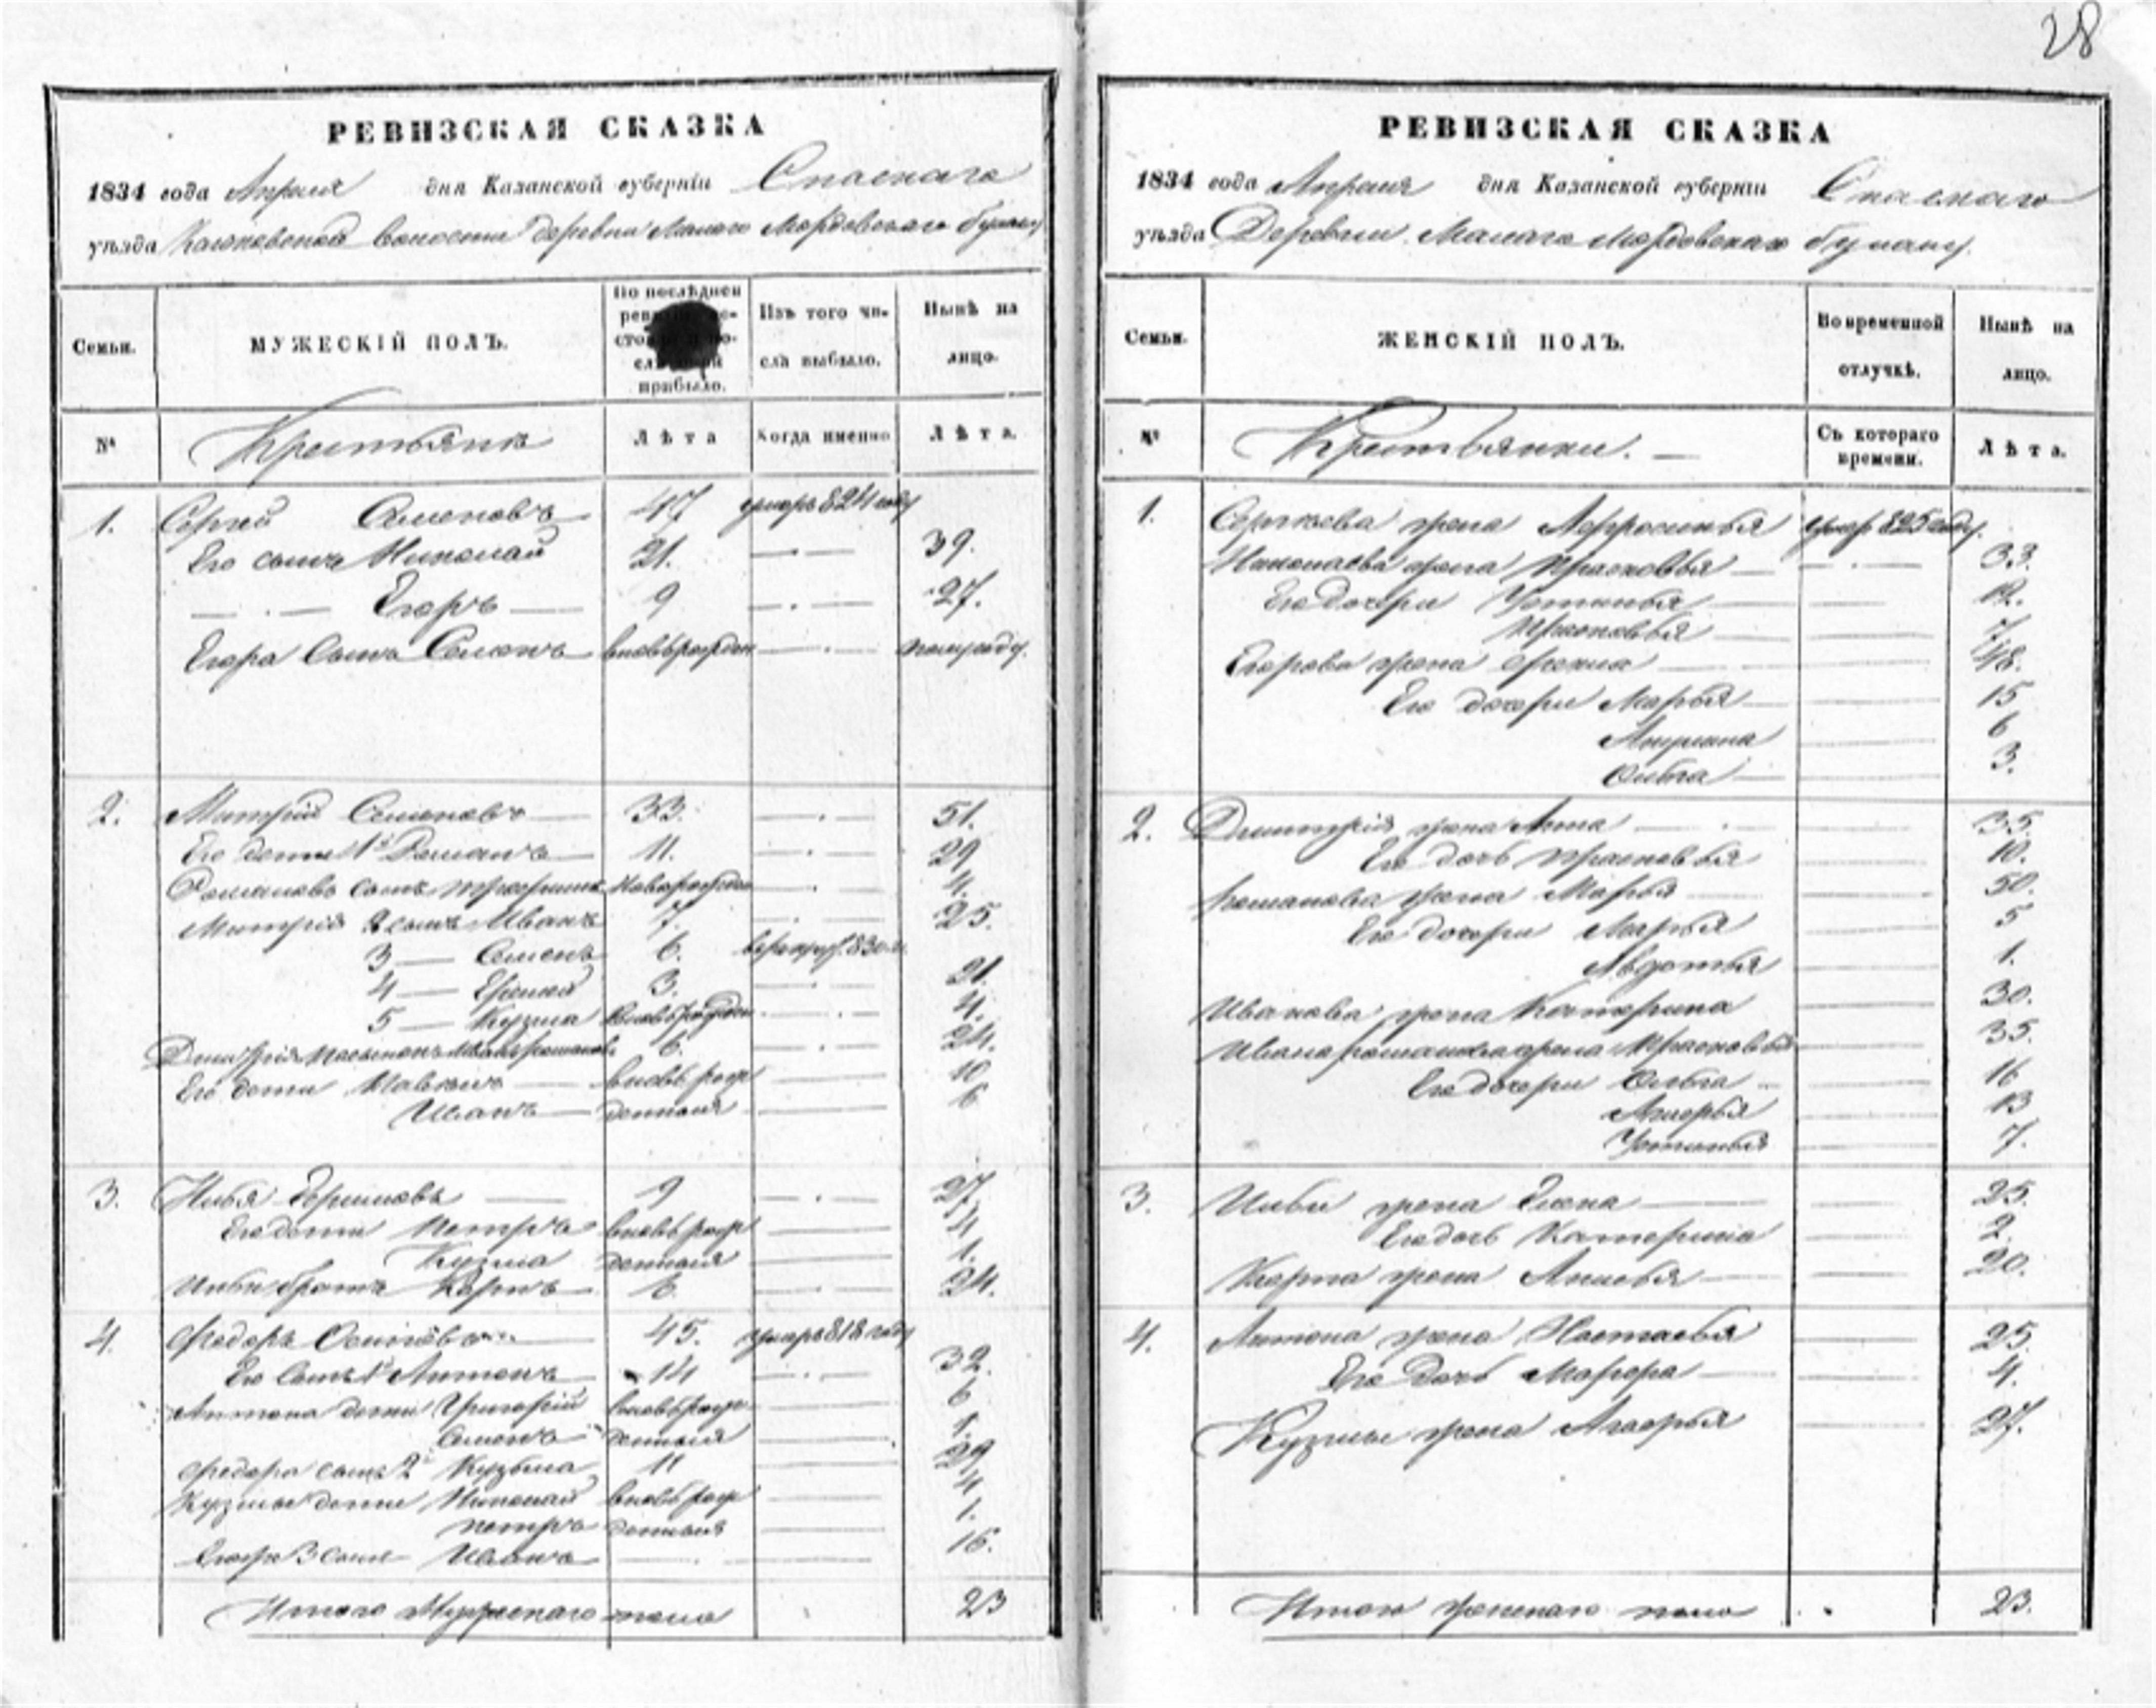 28
РЕВИЗСКАЯ СКАЗКА
1834 года Апреля дня Казанской губернiи Спаскаго
уѣзда волости деревни Малаго Мордовскаго
Семьи. МУЖЕСКIЙ ПОЛЪ. По послѣдней прибыло. Изъ того числа выбыло. Нынѣ на лицо.
№ Крестьяне Лѣта Когда именно Лѣта.
1. Сергей Семеновъ 47 умеръ 824 году
Его сынъ Николай 21. 39.
Егоръ 9 27.
Егора Сынъ Семенъ вновьрожден полугоду.
2. Митрiй Семеновъ 33. 51.
Его дети 1й Романъ 11. 29
Романовъ сынъ 4.
Митрiя 2 сынъ Иванъ 7. 25.
3 — Семенъ 6. в рекрут. 830 г.
4 — 3. 21.
5 — Кузма вновьрожден 4.
Дмитрiя пасынокъ 6. 24.
Его дети вновь рож 10
Иванъ денныя 6
3. Илья 9 27.
Его дети Петръ вновь рож 4
Кузма денныя 1.
Ильи братъ Карпъ 6 24.
4. Федоръ Осиповъ 45. умеръ 818 году
Его Сынъ 1й Антонъ 14 32.
Антона дети Григорiй вновь рож 6
Семенъ денныя 1.
Федора сынъ 2й Кузьма 11 29
Кузмы дети Николай вновь рож 4
петръ денныя 1.
3 сынъ Иванъ 16.
Итого Мужескаго пола 23
РЕВИЗСКАЯ СКАЗКА
1834 года Апреля дня Казанской губернiи Спаскаго
уѣзда Деревни Малаго Мордовскаго
Семьи. ЖЕНСКIЙ ПОЛЪ. Во временной отлучкѣ. Нынѣ на лицо.
№ Крестьянки. Съ котораго времени. Лѣта.
1. Сергеева жена Афросинья умер 825 году.
Николаева жена Прасковья 33.
Его дочери Устинья 12.
Прасковья 7.
Егорова жена 48.
Его дочери Марья 15
Акулина 6
Ольга 3.
2. Дмитрiя жена Анна 35.
Его дочь Прасковья 10.
Романова жена Марья 50.
Его дочери Марья 5
Авдотья 1.
Иванова жена Катерина 30.
Ивана жена Прасковья 35.
Его дочери Ольга 16
13
Устинья 7.
3. Ильи жена Елена 25.
Его дочь Катерина 2.
Карпа жена 20.
4. Антона жена Настасья 25.
Его дочь 4.
Кузмы жена 27.
Итого женскаго пола 23.